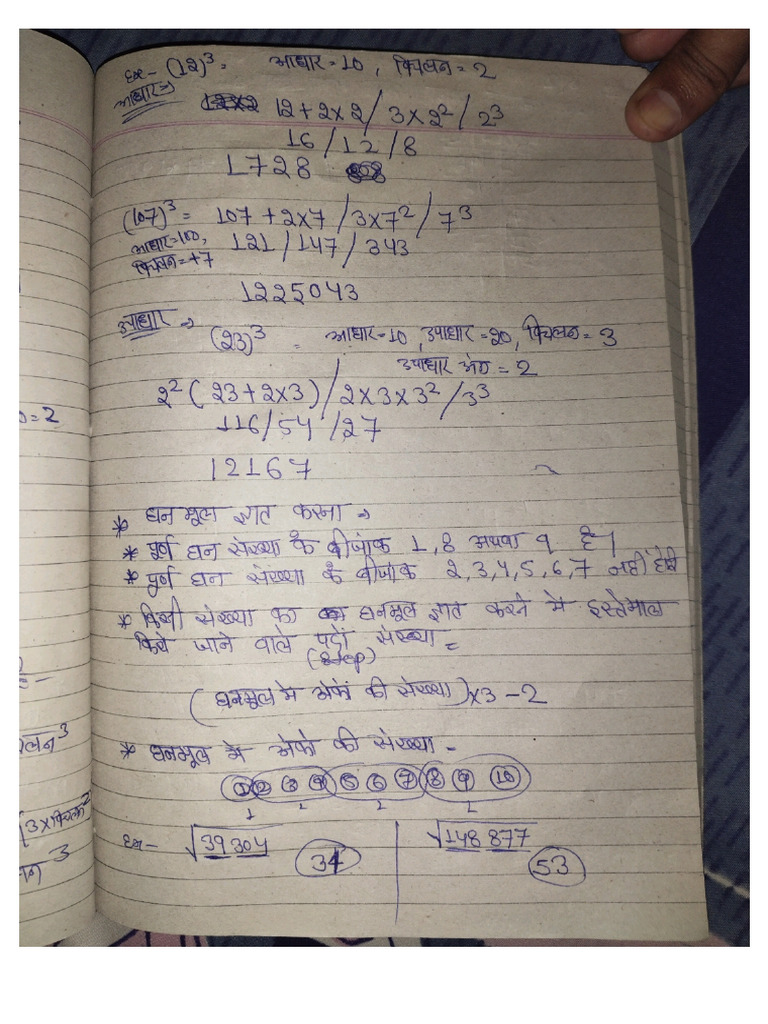 Ex- (12)³ = आधार=10, विचलन=2
आधार⇒
12+2×2/ 3×2²/ 2³
16/12/8
1728
(107)³ = 107+2×7 /3×7²/ 7³
आधार=100, 121/147/343
विचलन=+7
1225043
उपाधार ⇒ (23)³ = आधार=10, उपाधार=20, विचलन=3
उपाधार अंक = 2
2²(23+2×3)/2×3×3²/3³
116/54/27
12167
* घनमूल ज्ञात करना ⇒
* पूर्ण घन संख्या के बीजांक 1,8 अथवा 9 है।
* पूर्ण घन संख्या के बीजांक 2,3,4,5,6,7 नहीं होते
* किसी संख्या का घनमूल ज्ञात करने में इस्तेमाल
किये जाने वाले पदों संख्या =
(step)
(घनमूल में अंकों की संख्या)×3-2
* घनमूल में अंको की संख्या -
1 2 3 4 5 6 7 8 9 10
1 2 2 2
Ex- √39304 34 √148877 53
=2
चलन³
(3×विचलन²
3